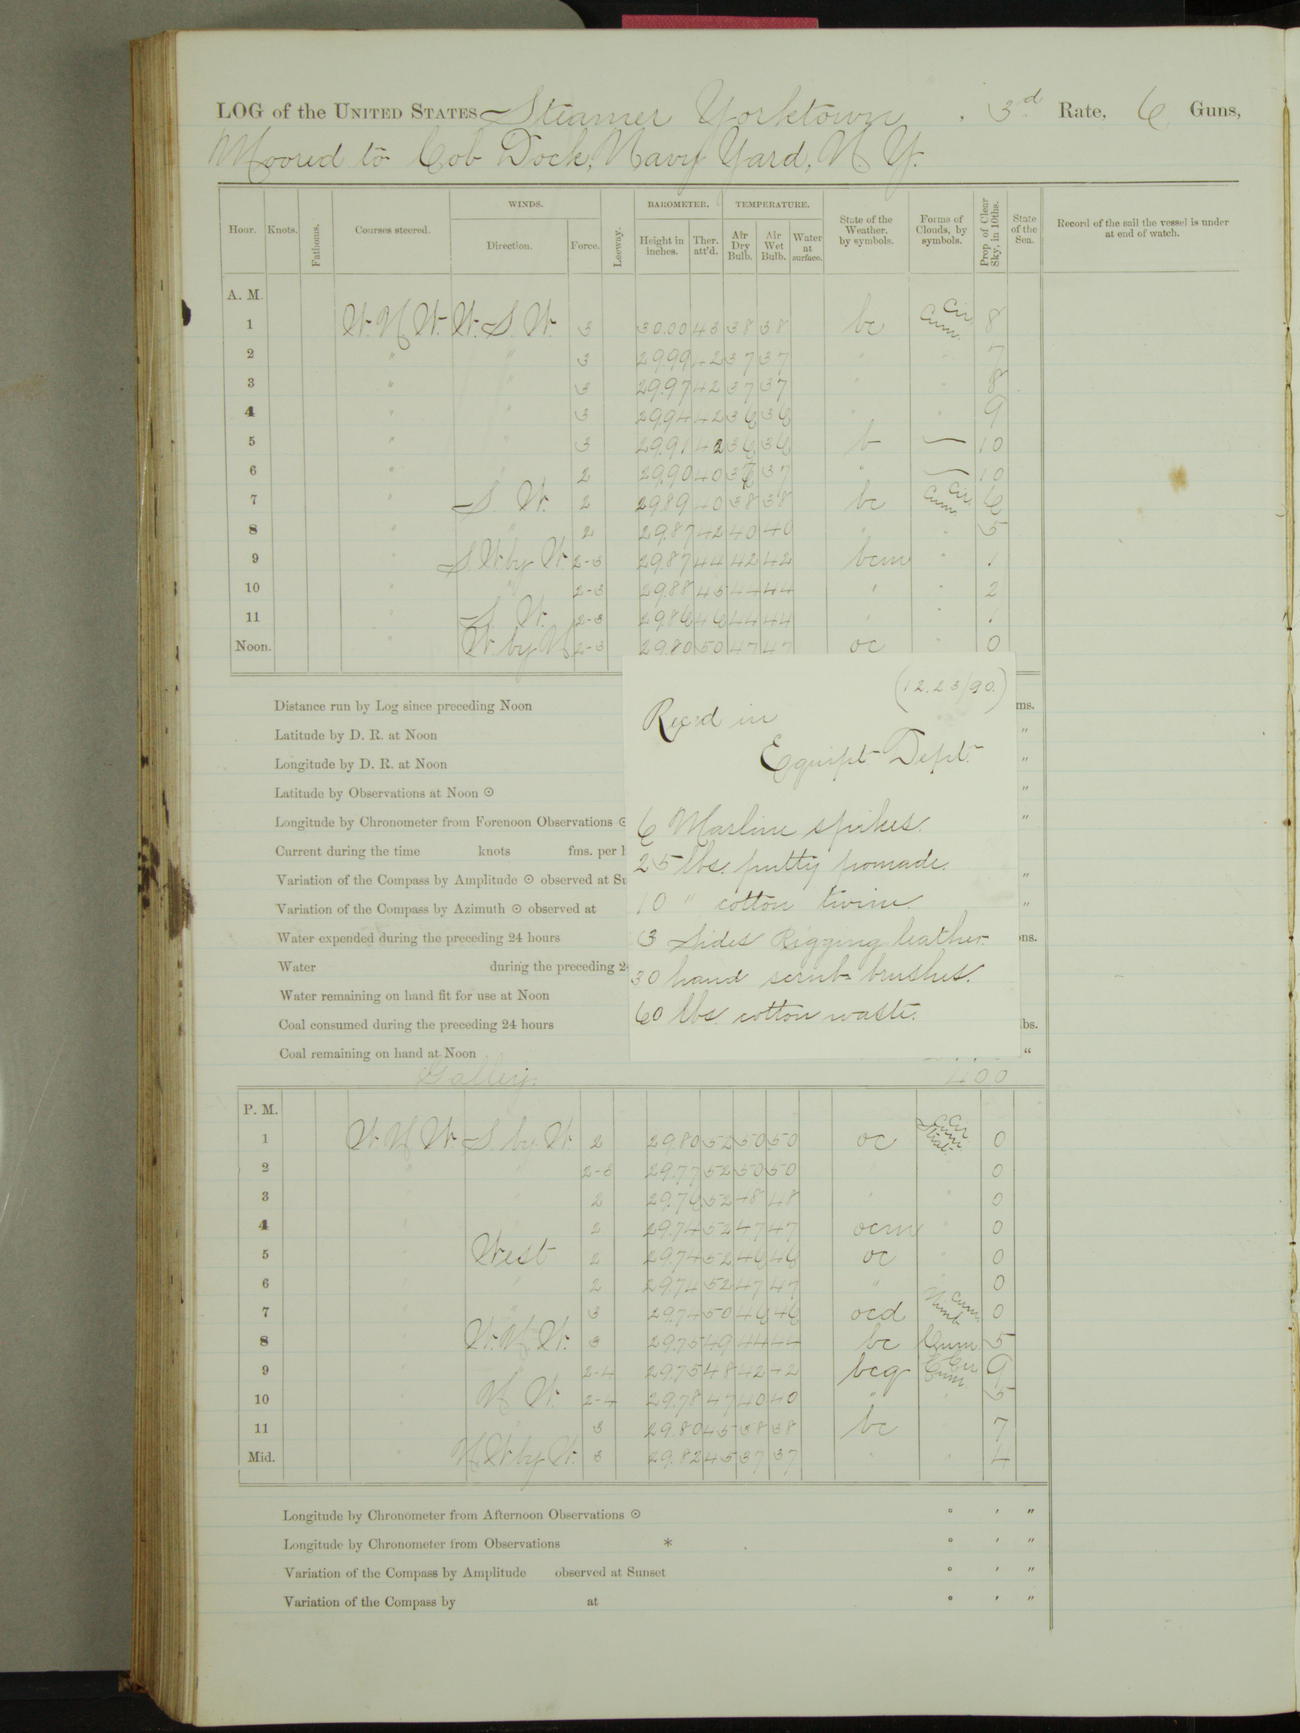 LOG of the UNITED STATES Steamer Yorktown, 3d Rate, 6 Guns,
Moored to Cob Dock, Navy Yard, N. Y.
Hour. Knots. Fathoms. Courses steered. WINDS. Direction. Force. Leeway. BAROMETER. Height in inches. Ther. att'd. TEMPERATURE. Air Dry Bulb. Air Wet Bulb. Water at surface. State of the Weather, by symbols. Forms of Clouds, by symbols. Prop. of Clear Sky, in 10ths. State of the Sea. Record of the sail the vessel is under at end of watch.
A. M.
1 W. N. W. W. S. W. 3 30.00 43 38 38 bc Cir. Cum. 8
2 " " 3 29.99 42 37 37 " " 7
3 " " 3 29.97 42 37 37 " " 8
4 " " 3 29.94 42 36 36 " " 9
5 " " 3 29.91 42 36 36 b — 10
6 " " 2 29.90 40 36 37 " — 10
7 " S. W. 2 29.89 40 38 38 bc Cir. Cum. 6
8 " " 2 29.87 42 40 40 " " 5
9 " S. W. by W. 2-3 29.87 44 42 42 bcm " 1
10 " " 2-3 29.88 45 44 44 " " 2
11 " S. W. 2-3 29.86 46 44 44 " " 1
Noon. W. by N. 2-3 29.80 50 47 47 oc " 0
Distance run by Log since preceding Noon ms.
Latitude by D. R. at Noon "
Longitude by D. R. at Noon "
Latitude by Observations at Noon ⊙ "
Longitude by Chronometer from Forenoon Observations ⊙ "
Current during the time knots fms. per
Variation of the Compass by Amplitude ⊙ observed at Su "
Variation of the Compass by Azimuth ⊙ observed at "
Water expended during the preceding 24 hours ns.
Water during the preceding 2
Water remaining on hand fit for use at Noon
Coal consumed during the preceding 24 hours lbs.
Coal remaining on hand at Noon "
Galley. 400
(12.23/90.)
Rec'd in
Equipt. Dept.
6 Marline spikes.
25 lbs. putty pomade.
10 " cotton twine.
3 sides Rigging leather.
30 hand scrub-brushes.
60 lbs. cotton waste.
P. M.
1 W. N. W. S. by W. 2 29.80 52 50 50 oc Cir. Cum. Strat. 0
2 " " 2-3 29.77 52 50 50 " " 0
3 " " 2 29.76 52 48 48 " " 0
4 " " 2 29.74 52 47 47 ocm " 0
5 " West 2 29.74 52 46 46 oc " 0
6 " " 2 29.74 52 47 47 " " 0
7 " " 3 29.74 50 46 46 ocd Cum. Nimb. 0
8 " W. N. W. 3 29.75 49 44 44 bc Cum. 5
9 " " 2-4 29.75 48 42 42 bcq Cir. Cum. 9
10 " N. W. 2-4 29.78 47 40 40 " " 5
11 " " 3 29.80 45 38 38 bc " 7
Mid. " N. W. by W. 3 29.82 45 37 37 " " 4
Longitude by Chronometer from Afternoon Observations ⊙ ° ′ ″
Longitude by Chronometer from Observations * ° ′ ″
Variation of the Compass by Amplitude observed at Sunset ° ′ ″
Variation of the Compass by at ° ′ ″